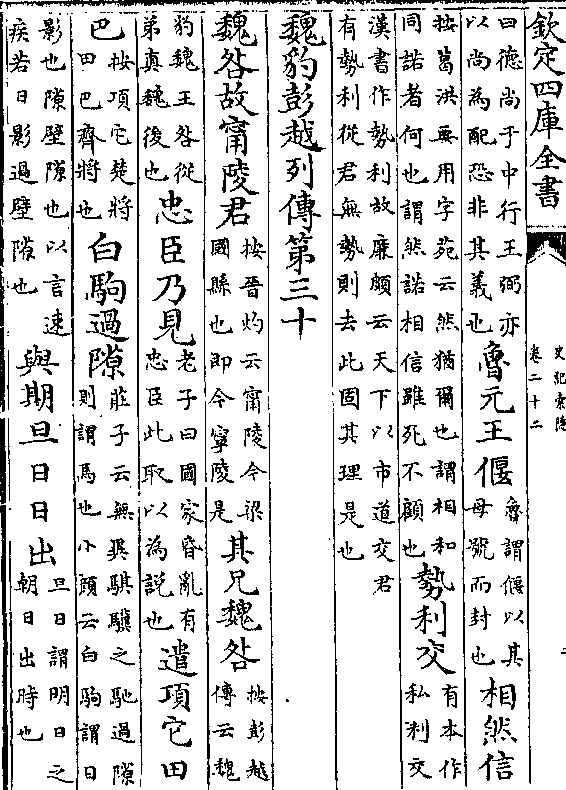 欽定四庫全書
史記索隱
卷二十二
二
曰德尚于中行王弼亦
以尚為配恐非其義也
魯元王偃
魯謂偃以其
母號而封也
相然信
按葛洪要用字苑云然猶爾也謂相和
同諾者何也謂然諾相信雖死不顧也
勢利交
有本作
私利交
漢書作勢利故廉頗云天下以市道交君
有勢利從君無勢則去此固其理是也
魏豹彭越列傳第三十
魏咎故甯陵君
按晉灼云甯陵今梁
國縣也即今寧陵是
其兄魏咎
按彭越
傳云魏
豹魏王咎從
弟真魏後也
忠臣乃見
老子曰國家昏亂有
忠臣此取以為說也
遣項它田
巴
按項它楚將
田巴齊將也
白駒過隙
莊子云無異騏驥之馳過隙
則謂馬也小顏云白駒謂日
影也隙壁隙也以言速
疾若日影過壁隙也
與期旦日日出
旦日謂明日之
朝日出時也